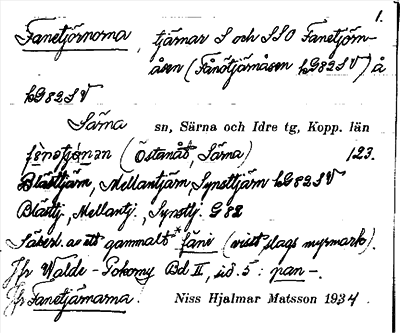 1.
Fanetjörnorna, tjärnar S och SSO Fanetjärn-
åsen (Fånåtjärnåsen hG82SV) å
hG82SV
Särna sn, Särna och Idre tg, Kopp. län
(Östanåt, Särna) 123.
Blästtjärn, Mellantjärn, Synsttjärn hG82SV
Blästtj., Mellantj., Synsttj. G82
Säkerl. av ett gammalt *fäni (visst slags myrmark).
Jfr Walde-Pokorny Bd II, sid. 5: pan-.
Jfr Fanetjärnarna. Niss Hjalmar Matsson 1934.